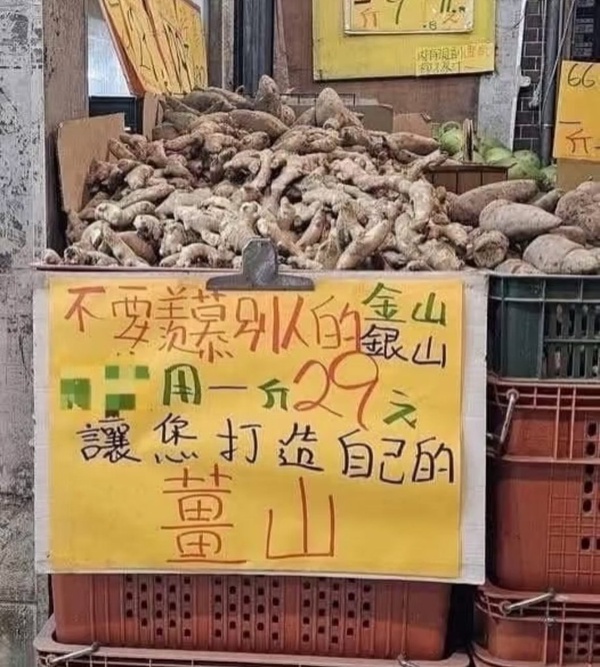 斤9元
66
一斤
不要羨慕別人的金山
銀山
用一斤29元
讓您打造自己的
薑山